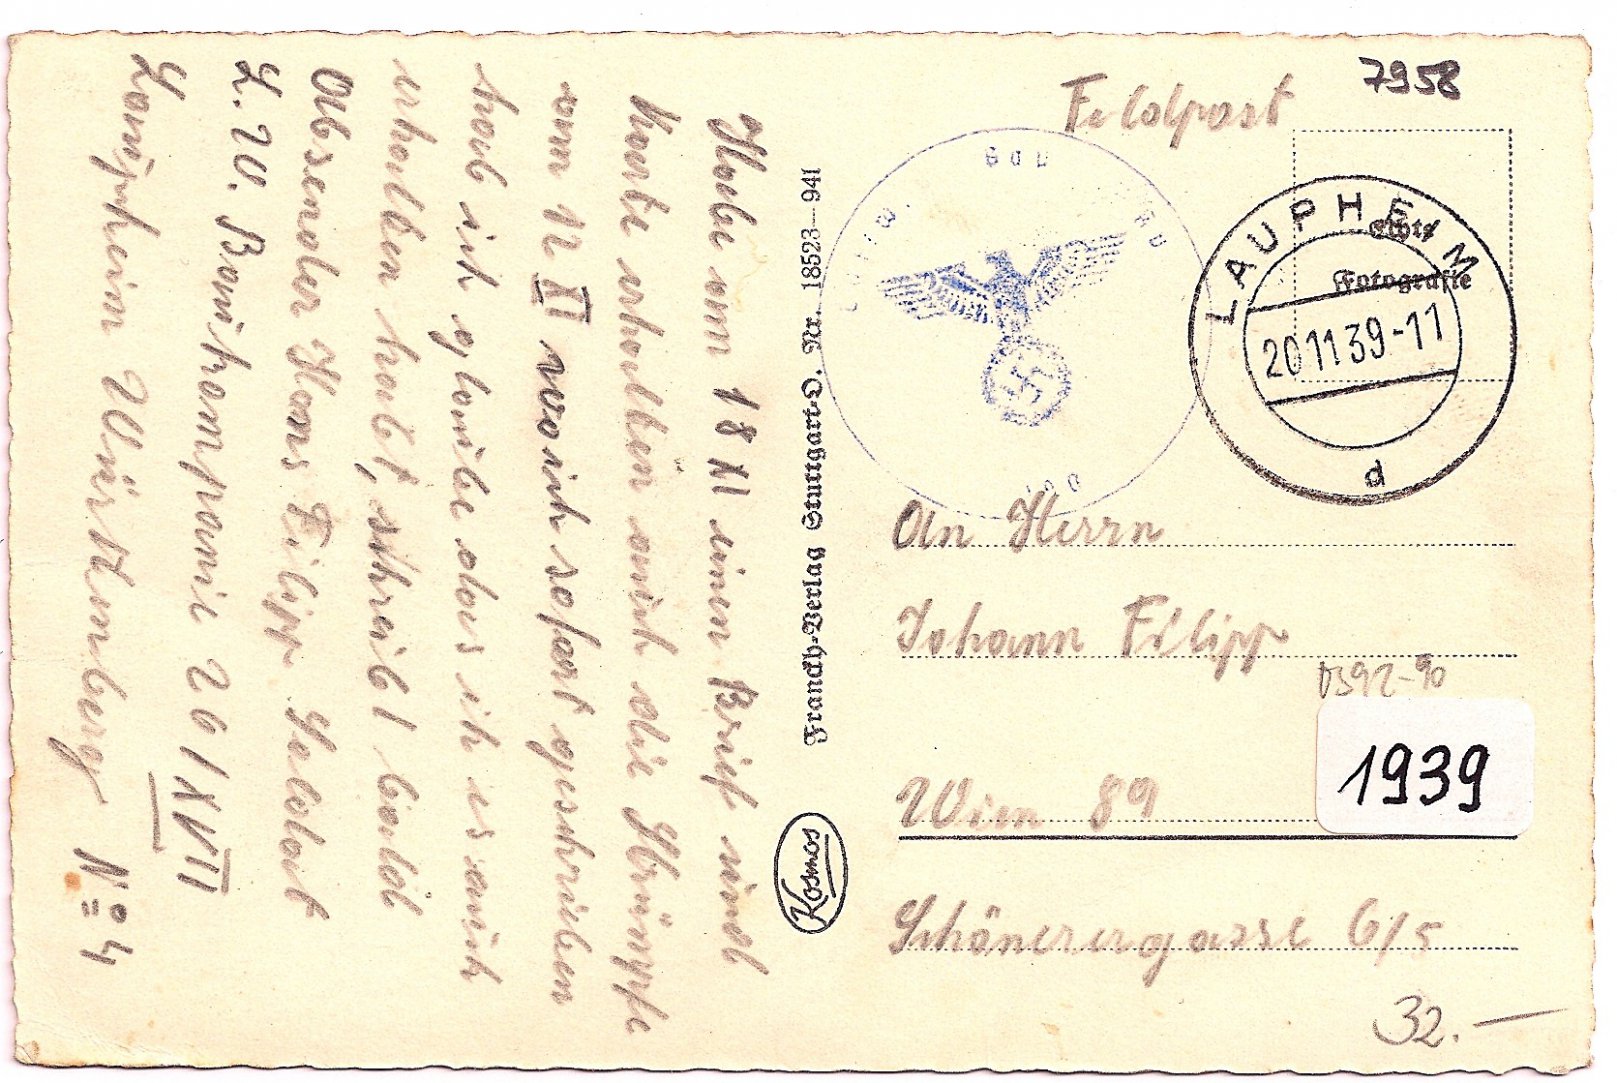 7958
Feldpost
Echte
Fotografie
LAUPHEIM
20.11.39-11
d
An Herrn
Johann Filipp
B92-90
1939
Wien 89
Schönerergasse 6/5
32.-
Franckh-Verlag Stuttgart-O. Nr. 18523-941
Kosmos
Habe am 18 XI einen Brief und
Karte erhalten auch die Strümpfe
am 12 XI was ich sofort geschrieben
hab ich glaube das ich es auch
erhalten habt, schreibt bald
Absender Hans Filipp Soldat
L. N. Baukompanie 20/XVII
Laupheim Würtemberg
Nº 4